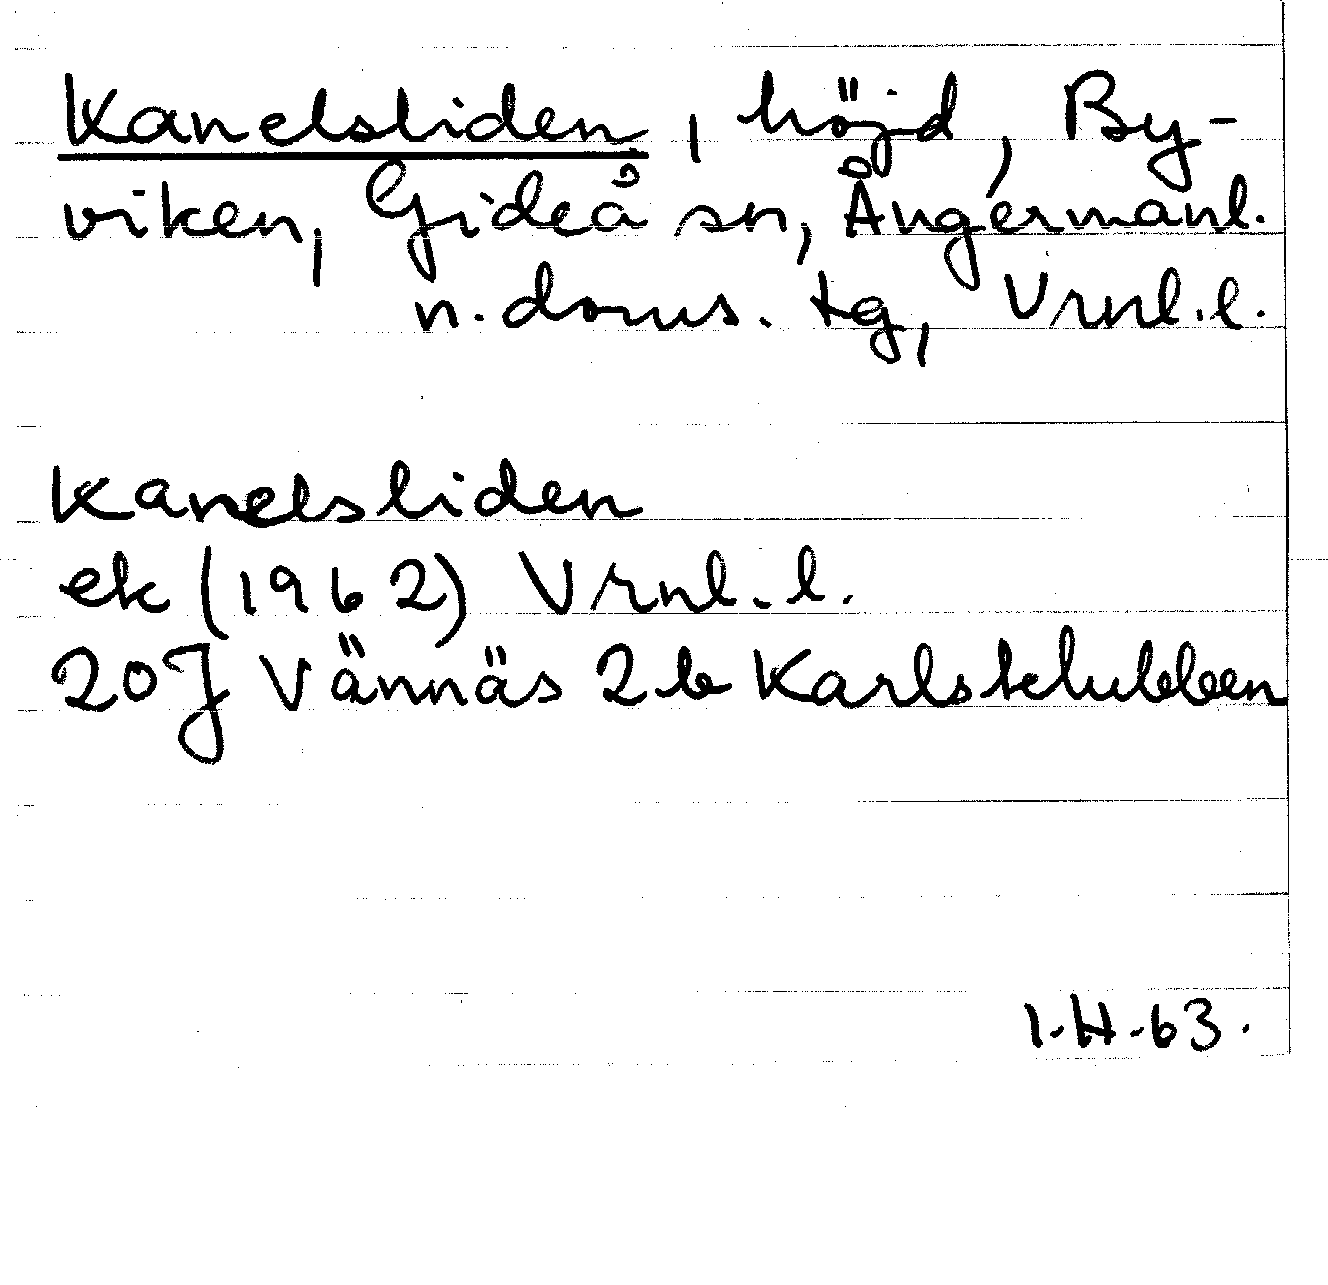 Kanelsliden, höjd, By-
viken, Gideå sn, Ångermanl.
n. doms. tg, Vrnl. l.
Kanelsliden
ek (1962) Vrnl. l.
20J Vännäs 2b Karlsklubben
I.H-63.